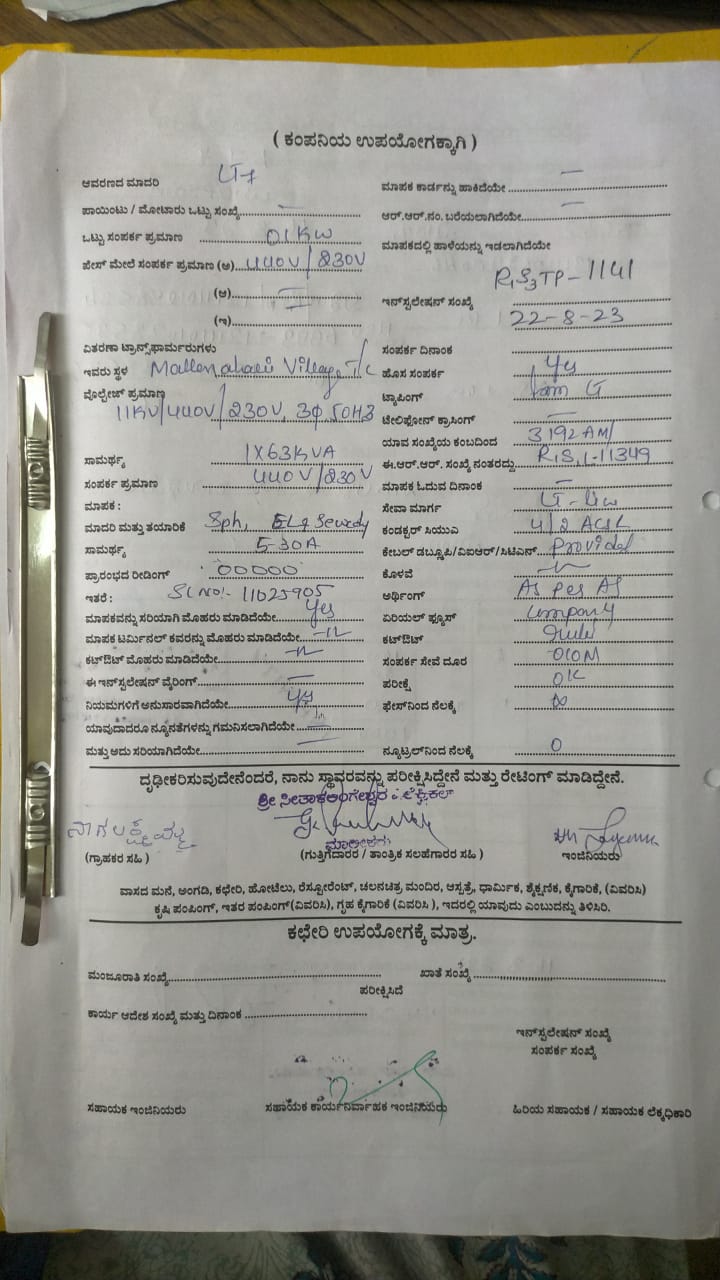 ( ಕಂಪನಿಯ ಉಪಯೋಗಕ್ಕಾಗಿ )
ಆವರಣದ ಮಾದರಿ LT-1
ಪಾಯಿಂಟು / ಮೋಟಾರು ಒಟ್ಟು ಸಂಖ್ಯೆ
ಒಟ್ಟು ಸಂಪರ್ಕ ಪ್ರಮಾಣ 01KW
ಫೇಸ್ ಮೇಲೆ ಸಂಪರ್ಕ ಪ್ರಮಾಣ (ಅ) 440V/230V
(ಆ)
(ಇ)
ವಿತರಣಾ ಟ್ರಾನ್ಸ್‌ಫಾರ್ಮರುಗಳು
ಇವರು ಸ್ಥಳ Mallenahalli Village T/C
ವೋಲ್ಟೇಜ್ ಪ್ರಮಾಣ
11KV/440V/230V, 3φ 50HZ
ಸಾಮರ್ಥ್ಯ 1X63KVA
ಸಂಪರ್ಕ ಪ್ರಮಾಣ 440V/230V
ಮಾಪಕ :
ಮಾದರಿ ಮತ್ತು ತಯಾರಿಕೆ Sph,
ಸಾಮರ್ಥ್ಯ 5-30A
ಪ್ರಾರಂಭದ ರೀಡಿಂಗ್ 00000
ಇತರೆ : Sl No:- 11025905
ಮಾಪಕವನ್ನು ಸರಿಯಾಗಿ ಮೊಹರು ಮಾಡಿದೆಯೇ Yes
ಮಾಪಕ ಟರ್ಮಿನಲ್ ಕವರನ್ನು ಮೊಹರು ಮಾಡಿದೆಯೇ
ಕಟ್‌ಔಟ್ ಮೊಹರು ಮಾಡಿದೆಯೇ
ಈ ಇನ್‌ಸ್ಟಲೇಷನ್ ವೈರಿಂಗ್
ನಿಯಮಗಳಿಗೆ ಅನುಸಾರವಾಗಿದೆಯೇ Yes
ಯಾವುದಾದರೂ ನ್ಯೂನತೆಗಳನ್ನು ಗಮನಿಸಲಾಗಿದೆಯೇ
ಮತ್ತು ಅದು ಸರಿಯಾಗಿದೆಯೇ
ಮಾಪಕ ಕಾರ್ಡನ್ನು ಹಾಕಿದೆಯೇ
ಆರ್.ಆರ್.ನಂ. ಬರೆಯಲಾಗಿದೆಯೇ
ಮಾಪಕದಲ್ಲಿ ಹಾಳೆಯನ್ನು ಇಡಲಾಗಿದೆಯೇ
ಇನ್‌ಸ್ಟಲೇಷನ್ ಸಂಖ್ಯೆ R1S3TP-1141
22-8-23
ಸಂಪರ್ಕ ದಿನಾಂಕ
ಹೊಸ ಸಂಪರ್ಕ Yes
ಟ್ಯಾಪಿಂಗ್
ಟೆಲಿಫೋನ್ ಕ್ರಾಸಿಂಗ್
ಯಾವ ಸಂಖ್ಯೆಯ ಕಂಬದಿಂದ 3192AM/
ಈ.ಆರ್.ಆರ್. ಸಂಖ್ಯೆ ನಂತರದ್ದು R1S1L-11349
ಮಾಪಕ ಓದುವ ದಿನಾಂಕ
ಸೇವಾ ಮಾರ್ಗ
ಕಂಡಕ್ಟರ್ ಸಿಯುಎ
ಕೇಬಲ್ ಡಬ್ಲ್ಯೂಪಿ/ವಿಐಆರ್/ಸಿಟಿಎಸ್ Provided
ಕೊಳವೆ
ಅರ್ಥಿಂಗ್ As Per AS
ಏರಿಯಲ್ ಫ್ಯೂಸ್ Company
ಕಟ್‌ಔಟ್
ಸಂಪರ್ಕ ಸೇವೆ ದೂರ 010M
ಪರೀಕ್ಷೆ OK
ಫೇಸ್‌ನಿಂದ ನೆಲಕ್ಕೆ ∞
ನ್ಯೂಟ್ರಲ್‌ನಿಂದ ನೆಲಕ್ಕೆ 0
ದೃಢೀಕರಿಸುವುದೇನೆಂದರೆ, ನಾನು ಸ್ಥಾವರವನ್ನು ಪರೀಕ್ಷಿಸಿದ್ದೇನೆ ಮತ್ತು ರೇಟಿಂಗ್ ಮಾಡಿದ್ದೇನೆ.
ಮಾಲೀಕರು
(ಗ್ರಾಹಕರ ಸಹಿ ) (ಗುತ್ತಿಗೆದಾರರ / ತಾಂತ್ರಿಕ ಸಲಹೆಗಾರರ ಸಹಿ ) ಇಂಜಿನಿಯರು
ವಾಸದ ಮನೆ, ಅಂಗಡಿ, ಕಛೇರಿ, ಹೋಟೆಲು, ರೆಸ್ಟೋರೆಂಟ್, ಚಲನಚಿತ್ರ ಮಂದಿರ, ಆಸ್ಪತ್ರೆ, ಧಾರ್ಮಿಕ, ಶೈಕ್ಷಣಿಕ, ಕೈಗಾರಿಕೆ, (ವಿವರಿಸಿ)
ಕೃಷಿ ಪಂಪಿಂಗ್, ಇತರ ಪಂಪಿಂಗ್(ವಿವರಿಸಿ), ಗೃಹ ಕೈಗಾರಿಕೆ (ವಿವರಿಸಿ ), ಇದರಲ್ಲಿ ಯಾವುದು ಎಂಬುದನ್ನು ತಿಳಿಸಿರಿ.
ಕಛೇರಿ ಉಪಯೋಗಕ್ಕೆ ಮಾತ್ರ.
ಮಂಜೂರಾತಿ ಸಂಖ್ಯೆ ಖಾತೆ ಸಂಖ್ಯೆ
ಪರೀಕ್ಷಿಸಿದೆ
ಕಾರ್ಯ ಆದೇಶ ಸಂಖ್ಯೆ ಮತ್ತು ದಿನಾಂಕ
ಇನ್‌ಸ್ಟಲೇಷನ್ ಸಂಖ್ಯೆ
ಸಂಪರ್ಕ ಸಂಖ್ಯೆ
ಸಹಾಯಕ ಇಂಜಿನಿಯರು ಸಹಾಯಕ ಕಾರ್ಯನಿರ್ವಾಹಕ ಇಂಜಿನಿಯರು ಹಿರಿಯ ಸಹಾಯಕ / ಸಹಾಯಕ ಲೆಕ್ಕಧಿಕಾರಿ